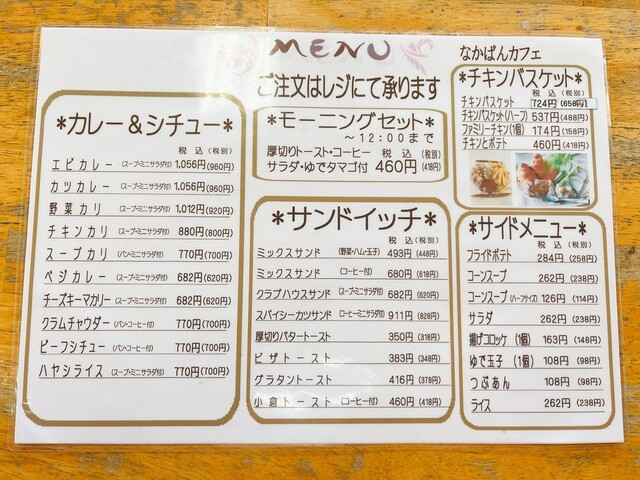 MENU
なかぱんカフェ
ご注文はレジにて承ります
*カレー&シチュー*
税込(税別)
エビカレー (スープ・ミニサラダ付) 1,056円(960円)
カツカレー (スープ・ミニサラダ付) 1,056円(960円)
野菜カリ (スープ・ミニサラダ付) 1,012円(920円)
チキンカリ (スープ・ミニサラダ付) 880円(800円)
スープカリ (パン・ミニサラダ付) 770円(700円)
ベジカレー (スープ・ミニサラダ付) 682円(620円)
チーズキーマカリー (スープ・ミニサラダ付) 682円(620円)
クラムチャウダー (パン・コーヒー付) 770円(700円)
ビーフシチュー (パン・コーヒー付) 770円(700円)
ハヤシライス (スープ・ミニサラダ付) 770円(700円)
*モーニングセット*
~12:00まで
厚切りトースト・コーヒー 税込 (税別)
サラダ・ゆでタマゴ付 460円(418円)
*サンドイッチ*
税込(税別)
ミックスサンド (野菜・ハム・玉子) 493円(448円)
ミックスサンド (コーヒー付) 680円(618円)
クラブハウスサンド (スープ・ミニサラダ付) 682円(620円)
スパイシーカツサンド (コーヒーミニサラダ付) 911円(828円)
厚切りバタートースト 350円(318円)
ピザトースト 383円(348円)
グラタントースト 416円(378円)
小倉トースト (コーヒー付) 460円(418円)
*チキンバスケット*
税込(税別)
チキンバスケット 724円(658円)
チキンバスケット(ハーフ) 537円(488円)
ファミリーチキン(1個) 174円(158円)
チキンとポテト 460円(418円)
*サイドメニュー*
税込(税別)
フライドポテト 284円(258円)
コーンスープ 262円(238円)
コーンスープ (ハーフサイズ) 126円(114円)
サラダ 262円(238円)
揚げコロッケ (1個) 163円(148円)
ゆで玉子 (1個) 108円(98円)
つぶあん 108円(98円)
ライス 262円(238円)